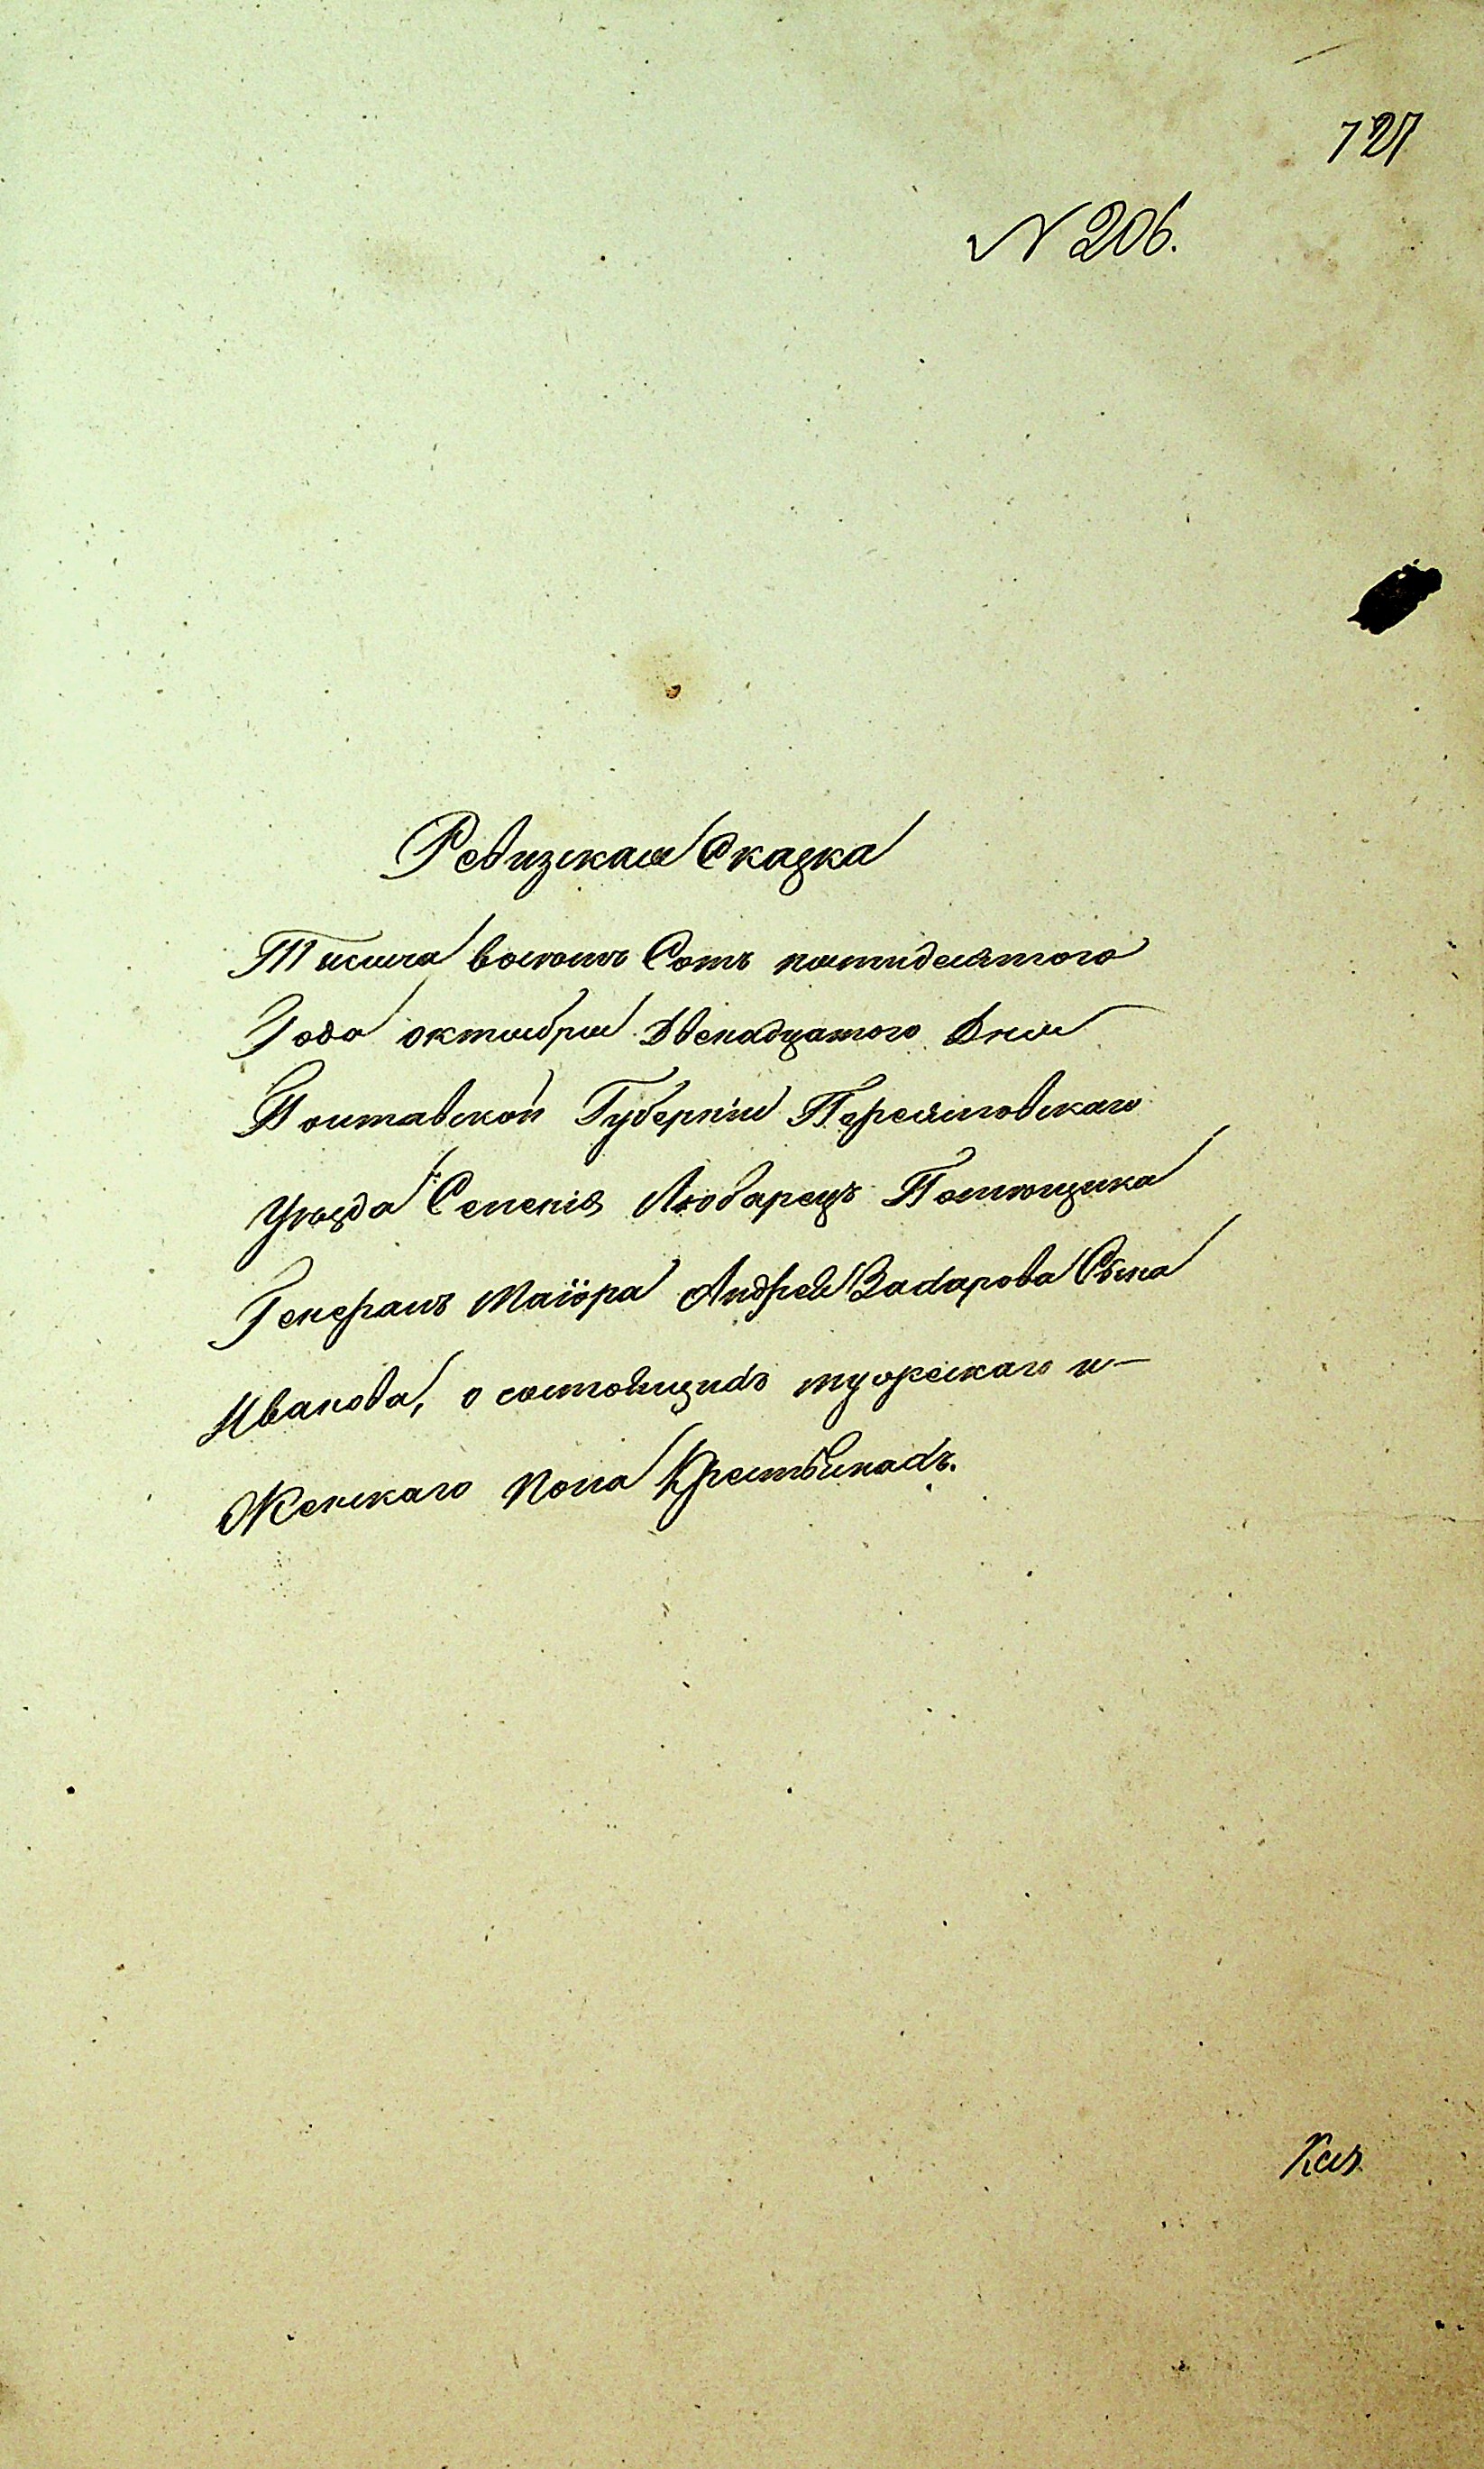 727
№ 206.
Ревизская Сказка
Тысяча восемь Сотъ пятидесятого
Года октября Двенадцатого Дня
Полтавской Губерніи Переяславского
уезда Селенія Любарецъ Помещика
Генералъ Маіора Андрея Захарова Сына
Иванова, о состоящихъ мужескаго и
Женскаго пола Крестьянахъ.